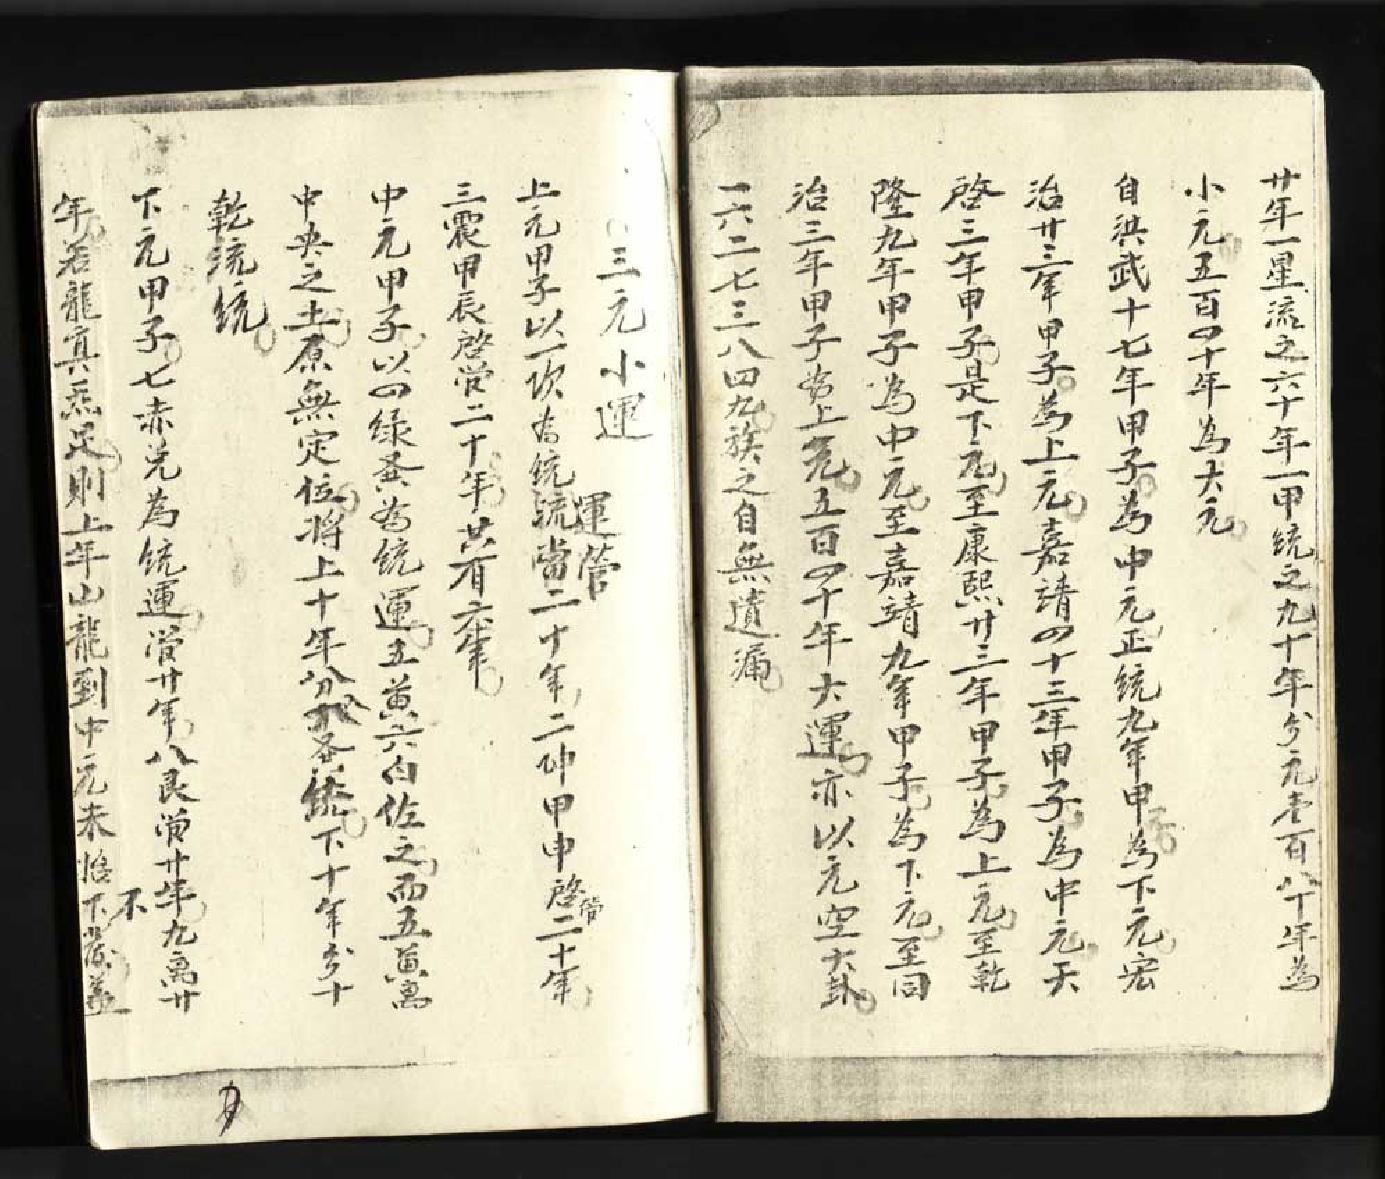 廿年一星流之六十年一甲統之九十年分元壱百八十年為
小元五百四十年為大元
自洪武十七年甲子為中元正統九年甲子為下元宏
治廿三年甲子為上元嘉靖四十三年甲子為中元天
啓三年甲子是下元至康熙廿三年甲子為上元至乾
隆九年甲子為中元至嘉靖九年甲子為下元至同
治三年甲子為上元五百四十年大運亦以元空大卦
一六二七三八四九族之自無遺漏
三元小運
上元甲子以一坎為統運管二十年二坤甲申啓管二十年
三震甲辰啓管二十年共有六年
中元甲子以四綠巽為統運五黃六白佐之而五黃寓
中央之土原無定位將上十年分巽統下十年分十
乾統統
下元甲子七赤兌為統運管廿年八艮管廿年九离廿
年若龍真炁足則上年山龍到中元未怡下不發